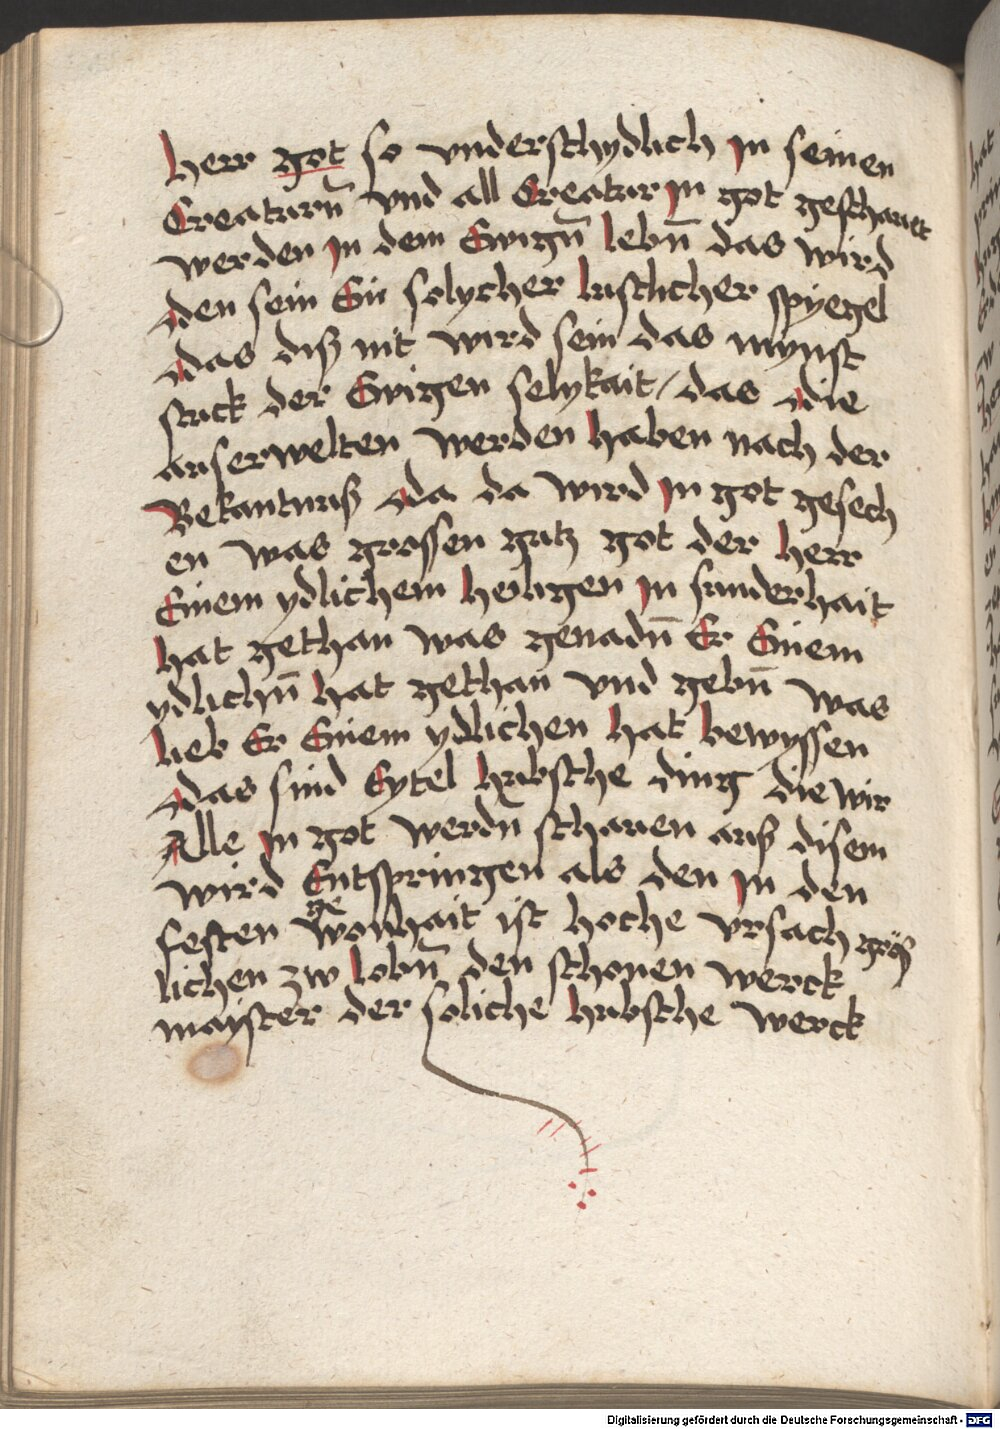 herr got so vnderschydlich In seinen
Creaturn̄ vnd all Creatur In got geschauet
werden In dem Ewign̄ lebn̄ das wird
den sein Ein solycher lustlicher spyegel
das diß nit wird sein das mynst
stuck der Ewigen selykait / das die
auserwelten werden haben nach der
Bekantnuß da da wird In got gesech
en was grossen gutz got der herr
Einem ydlichem heiligen In sunderhait
hat gethan was genadn̄ Er Einem
ydlichn̄ hat gethan vnd gebn̄ was
lieb Er Einem ydlichen hat bewyssen
das sind Eytel hubsche ding die wir
Alle In got werdn̄ schauen auß disem
wird Entspringen als den In den
festen gewonhait ist hoche vrsach
lichen zw lobn̄ den schonen werck
mayster der soliche hubsche werck
Digitalisierung gefördert durch die Deutsche Forschungsgemeinschaft - DFG